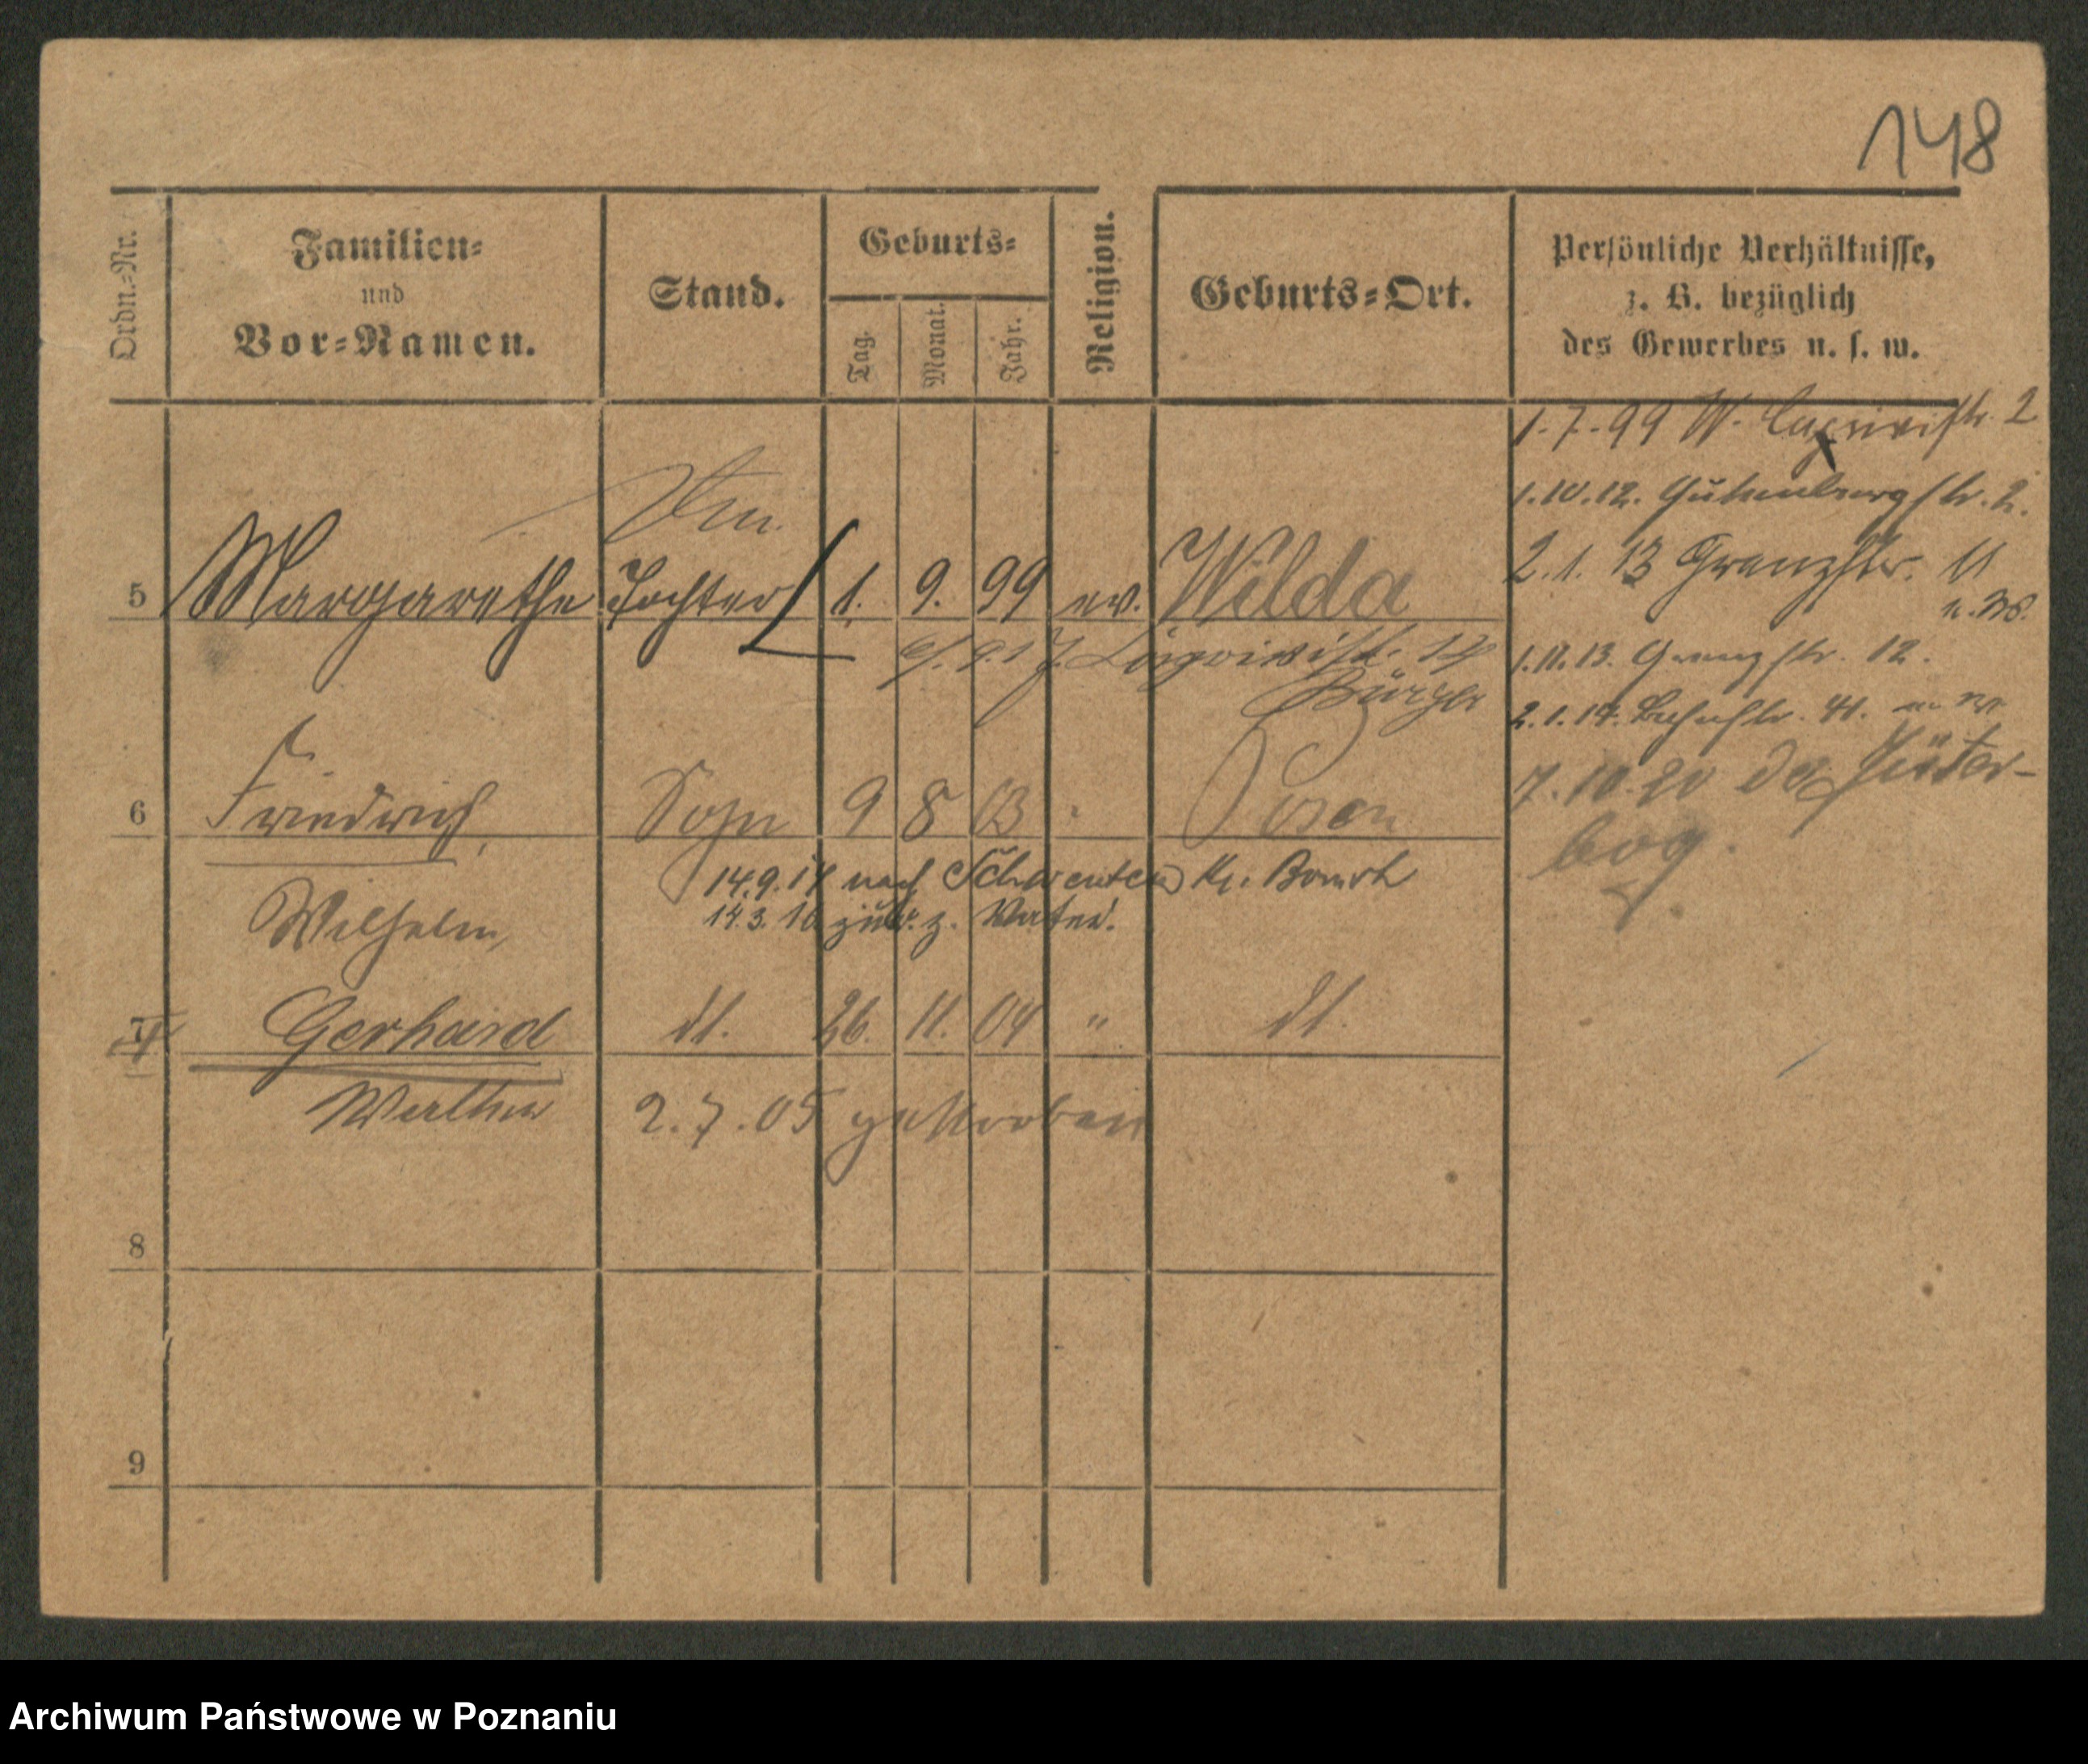 148
Ordn.=Nr.
Familien=
und
Vor=Namen.
Stand.
Geburts=
Tag.
Monat.
Jahr.
Religion.
Geburts=Ort.
Persönliche Verhältnisse,
z. B. bezüglich
des Gewerbes u. s. w.
1.7.99 W. Caprivistr. 2
1.10.12. Gutenbergstr. 2.
2.1.13 Grenzstr. 11
1.11.13. Grenzstr. 12.
2.1.14. 41.
7.10.20 Jüter-
bog.
5 Margarethe Tochter 1. 9. 99 ev. Wilda
Caprivistr.
6 Friedrich, Sohn 9 8 03 Posen
14.9.14 nach Schwenten Kr. Bomst
Wilhelm,
14.3.16 zur. z. Vater.
7 Gerhard dt. 26. 11. 04 " dt.
Walther 2.7.05 gestorben
8
9
Archiwum Państwowe w Poznaniu